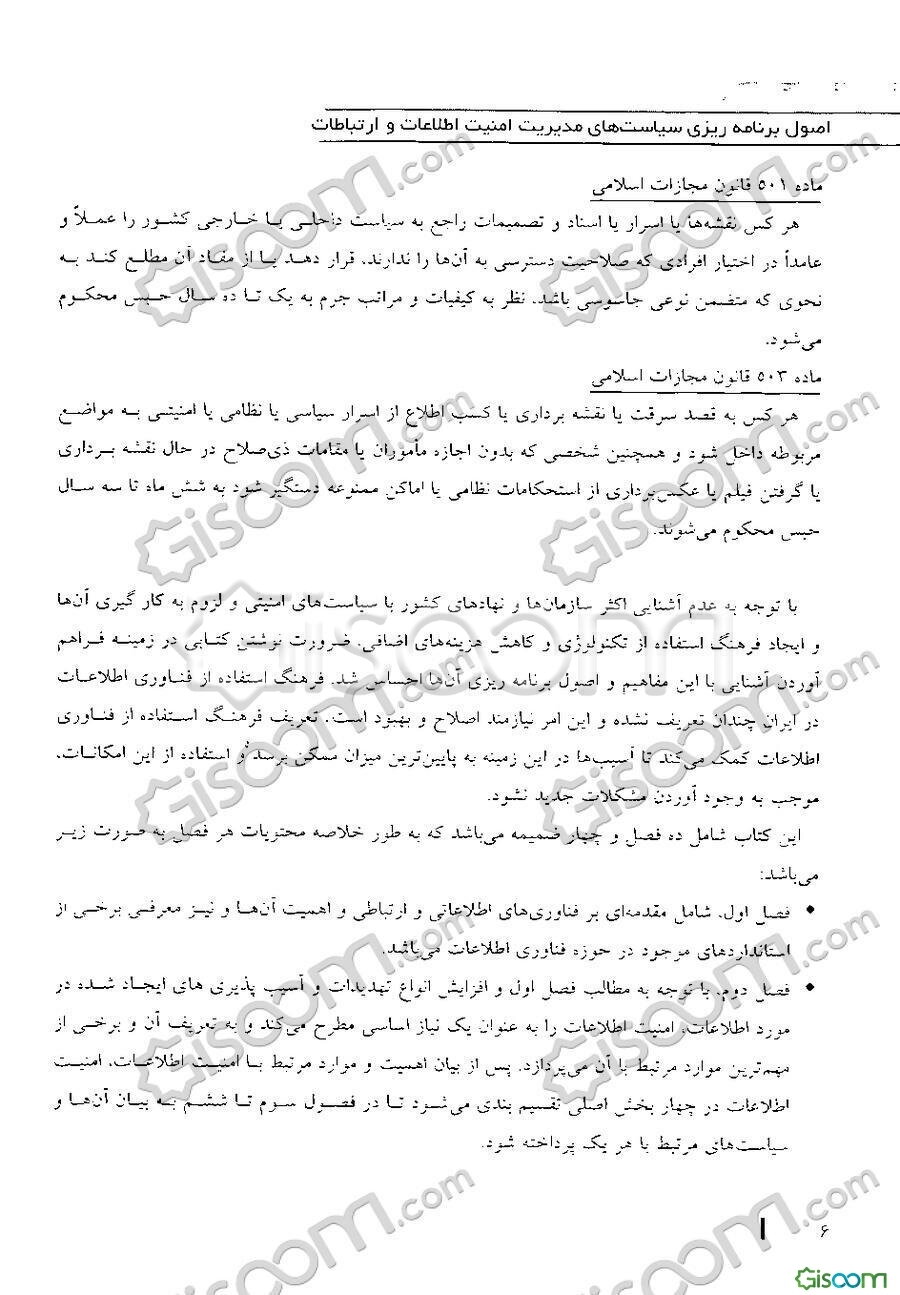 اصول برنامه ریزی سیاست‌های مدیریت امنیت اطلاعات و ارتباطات
ماده ۵۰۱ قانون مجازات اسلامی
هر کس نقشه‌ها یا اسرار یا اسناد و تصمیمات راجع به سیاست داخلی یا خارجی کشور را عملاً و
عامداً در اختیار افرادی که صلاحیت دسترسی به آن‌ها را ندارند، قرار دهد یا از مفاد آن مطلع کند به
نحوی که متضمن نوعی جاسوسی باشد، نظر به کیفیات و مراتب جرم به یک تا ده سال حبس محکوم
می‌شود.
ماده ۵۰۳ قانون مجازات اسلامی
هر کس به قصد سرقت یا نقشه برداری یا کسب اطلاع از اسرار سیاسی یا نظامی یا امنیتی به مواضع
مربوطه داخل شود و همچنین شخصی که بدون اجازه مأموران یا مقامات ذی‌صلاح در حال نقشه برداری
یا گرفتن فیلم یا عکس‌برداری از استحکامات نظامی یا اماکن ممنوعه دستگیر شود به شش ماه تا سه سال
حبس محکوم می‌شوند.
با توجه به عدم آشنایی اکثر سازمان‌ها و نهادهای کشور با سیاست‌های امنیتی و لزوم به کار گیری آن‌ها
و ایجاد فرهنگ استفاده از تکنولوژی و کاهش هزینه‌های اضافی، ضرورت نوشتن کتابی در زمینه فراهم
آوردن آشنایی با این مفاهیم و اصول برنامه ریزی آن‌ها احساس شد. فرهنگ استفاده از فناوری اطلاعات
در ایران چندان تعریف نشده و این امر نیازمند اصلاح و بهبود است. تعریف فرهنگ استفاده از فناوری
اطلاعات کمک می‌کند تا آسیب‌ها در این زمینه به پایین‌ترین میزان ممکن برسد و استفاده از این امکانات،
موجب به وجود آوردن مشکلات جدید نشود.
این کتاب شامل ده فصل و چهار ضمیمه می‌باشد که به طور خلاصه محتویات هر فصل به صورت زیر
می‌باشد:
• فصل اول، شامل مقدمه‌ای بر فناوری‌های اطلاعاتی و ارتباطی و اهمیت آن‌ها و نیز معرفی برخی از
استانداردهای موجود در حوزه فناوری اطلاعات می‌باشد.
• فصل دوم، با توجه به مطالب فصل اول و افزایش انواع تهدیدات و آسیب پذیری های ایجاد شده در
مورد اطلاعات، امنیت اطلاعات را به عنوان یک نیاز اساسی مطرح می‌کند و به تعریف آن و برخی از
مهم‌ترین موارد مرتبط با آن می‌پردازد. پس از بیان اهمیت و موارد مرتبط با امنیت اطلاعات، امنیت
اطلاعات در چهار بخش اصلی تقسیم بندی می‌شود تا در فصول سوم تا ششم به بیان آن‌ها و
سیاست‌های مرتبط با هر یک پرداخته شود.
۶
Gisoom